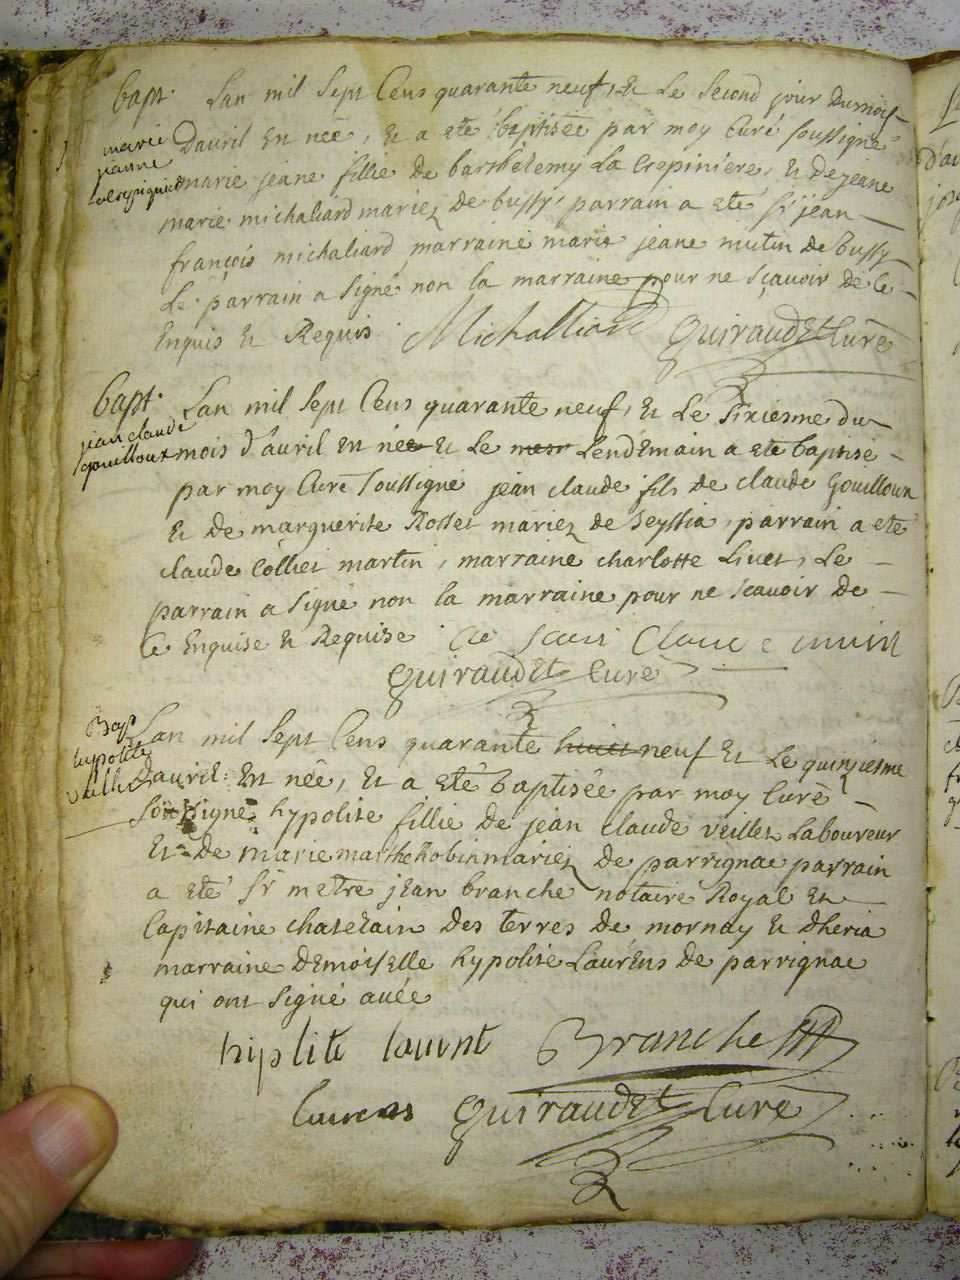 bapt.
Lan mil sept Cens quarante neuf, et Le second jour Dumois
marie
jeanne
Lacrepiniere
Davril En née, et a eté baptisée par moy Curé soussigné
marie jeane fillie de barthelemy La Crepiniere, et de jeane
marie michaliard mariez de bussy, parrain a eté sr jean
françois michaliard marraine marie jeane mutin de bussy
Le parrain a signé non la marraine pour ne sçavoir de ce
Enquis et Requis. Michalliard Guiraudet Curé
bapt.
Lan mil sept Cens quarante neuf, et Le sixiesme du
jean claude
gouilloux
mois d'avril En née et Le mesr Lendemain a eté baptisé
par moy Curé soussigné jean claude fils de claude Gouilloux
et de marguerite Rosset mariez de Seyssia, parrain a eté
claude Colliet martin, marraine charlotte Livet, Le
parrain a signé non la marraine pour ne scavoir de
Ce Enquise et Requise
Guiraudet Curé
Bap
hypolite
Lan mil sept Cens quarante huict neuf et Le quinziesme
Davril: En née, et a eté baptisée par moy Curé
soussigné hypolite fillie de jean claude veillet Laboureur
et de marie marthe Robin mariez de parrignac parrain
a eté sr metre jean branche notaire Royal et
Capitaine chatelain des terres de mornay et dheria
marraine Demoiselle hypolite Laurens de parrignac
qui ont signé avée
hiplite laurnt Branche
Laurens Guiraudet Curé